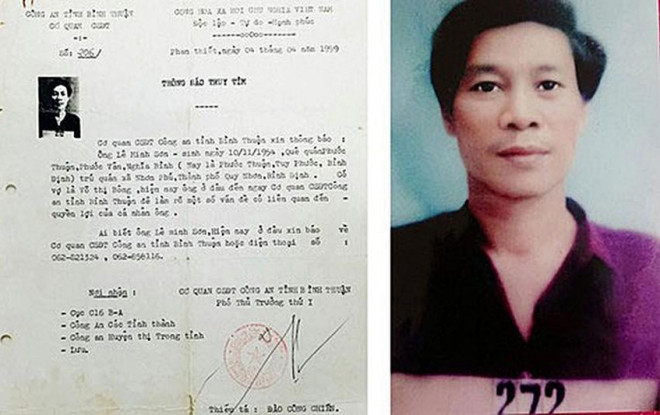 CÔNG AN TỈNH BÌNH THUẬN
CƠ QUAN CSĐT
-:-
Số: 206/
CỘNG HÒA XÃ HỘI CHỦ NGHĨA VIỆT NAM
Độc lập - Tự do -Hạnh phúc
Phan thiết,ngày 04 tháng 04 năm 1999
THÔNG BÁO TRUY TÌM
-----
Cơ quan CSĐT Công an tỉnh Bình Thuận xin thông báo :
Ông Lê Minh Sơn - sinh ngày 10/11/1954 ,Quê quán:Phước
Thuận,Phước Vân,Nghĩa Bình ( Nay là Phước Thuận,Tuy Phước, Bình
Định) trú quán xã Nhơn Phú,Thành phố Quy Nhơn,Bình Định . Có
vợ là Võ thị Bông ,hiện nay ông ở đâu đến ngay Cơ quan CSĐTCông
an tỉnh Bình Thuận để làm rõ một số vấn đề có liên quan đến -
quyền lợi của cá nhân ông .
Ai biết ông Lê minh Sơn,Hiện nay ở đâu xin báo về
Cơ quan CSĐT Công an tỉnh Bình Thuận hoặc điện thoại số :
062-821324 ,062-858116.
Nơi nhận :
- Cục C16 B-A
- Công An Các Tỉnh thành
- Công an Huyện thị Trong tỉnh
- Lưu.
CƠ QUAN CSĐT CÔNG AN TỈNH BÌNH THUẬN
Phó Thủ Trưởng thứ I
Thiếu tá : ĐÀO CÔNG CHIẾN.
272